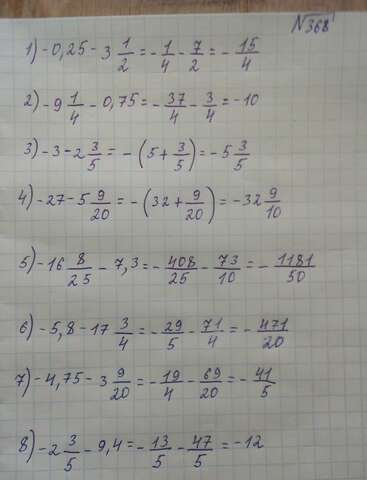 №368
1) -0,25 - 3 1/2 = - 1/4 - 7/2 = - 15/4
2) - 9 1/4 - 0,75 = - 37/4 - 3/4 = -10
3) -3 - 2 3/5 = - (5 + 3/5) = -5 3/5
4) -27 - 5 9/20 = - (32 + 9/20) = -32 9/10
5) -16 8/25 - 7,3 = - 408/25 - 73/10 = - 1181/50
6) -5,8 - 17 3/4 = - 29/5 - 71/4 = - 471/20
7) -4,75 - 3 9/20 = - 19/4 - 69/20 = - 41/5
8) -2 3/5 - 9,4 = - 13/5 - 47/5 = -12